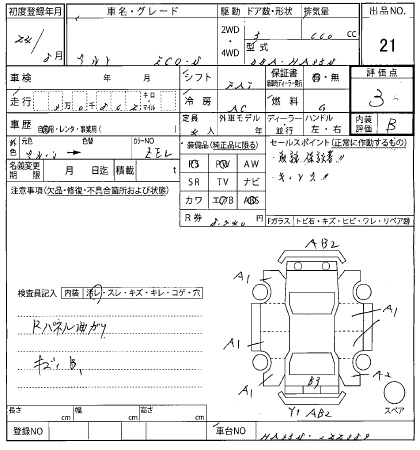 初度登録年月
車名・グレード
駆動 ドア数・形状 排気量
出品NO.
2WD
・
4WD
5
660 cc
21
24/
8月
ECO-S
型式
DBA-HA35S
車検 年 月
シフト
FAT
保証書
有・無
評価点
走行
キロ
マイル
冷房
AC
燃料
G
3
車歴
自家用・レンタ・事業用( )
定員
4人
外車モデル
年
ディーラー
並行
ハンドル
左・右
内装
評価
B
外色
元色
色替
カラーNO
→
ZEL
装備品(純正品に限る)
セールスポイント(正常に作動するもの)
取説、保証書!!
キーレス!!
名義変更
期限
月 日迄
積載 t
PS PW AW
SR TV ナビ
カワ エアB ABS
注意事項(欠品・修復・不具合箇所および状態)
R券
円
Fガラス トビ石・キズ・ヒビ・ワレ・リペア跡
検査員記入 内装 汚レ・スレ・キズ・キレ・コゲ・穴
Rパネル油ガリ
キズ、B1
AB2
A1
A1
A1
A1
A1
A2
B3
Y1 AB2
スペア
長さ cm
幅 cm
高さ cm
登録NO
車台NO